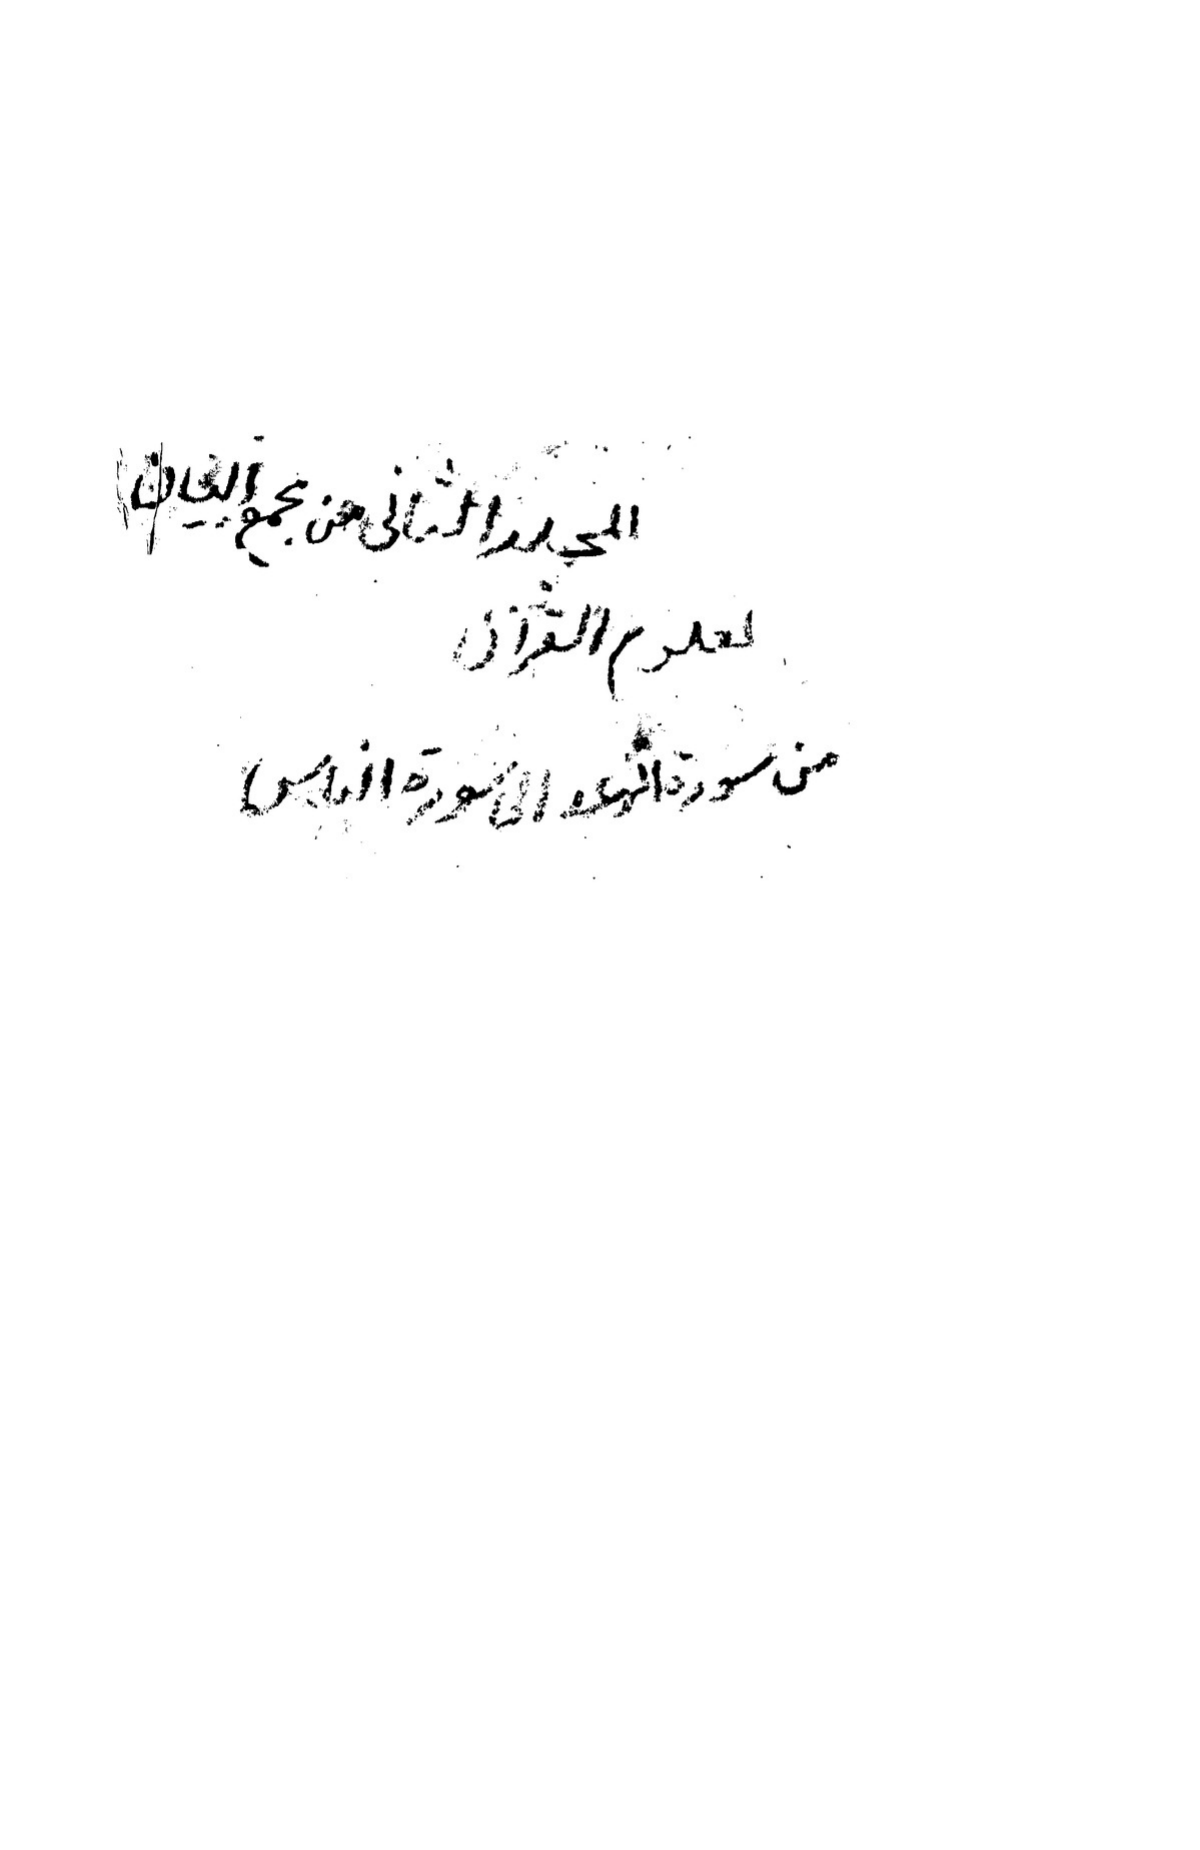 المجلد الثانى من مجمع البيان
لعلوم القرآن
من سورة الى سورة الناس